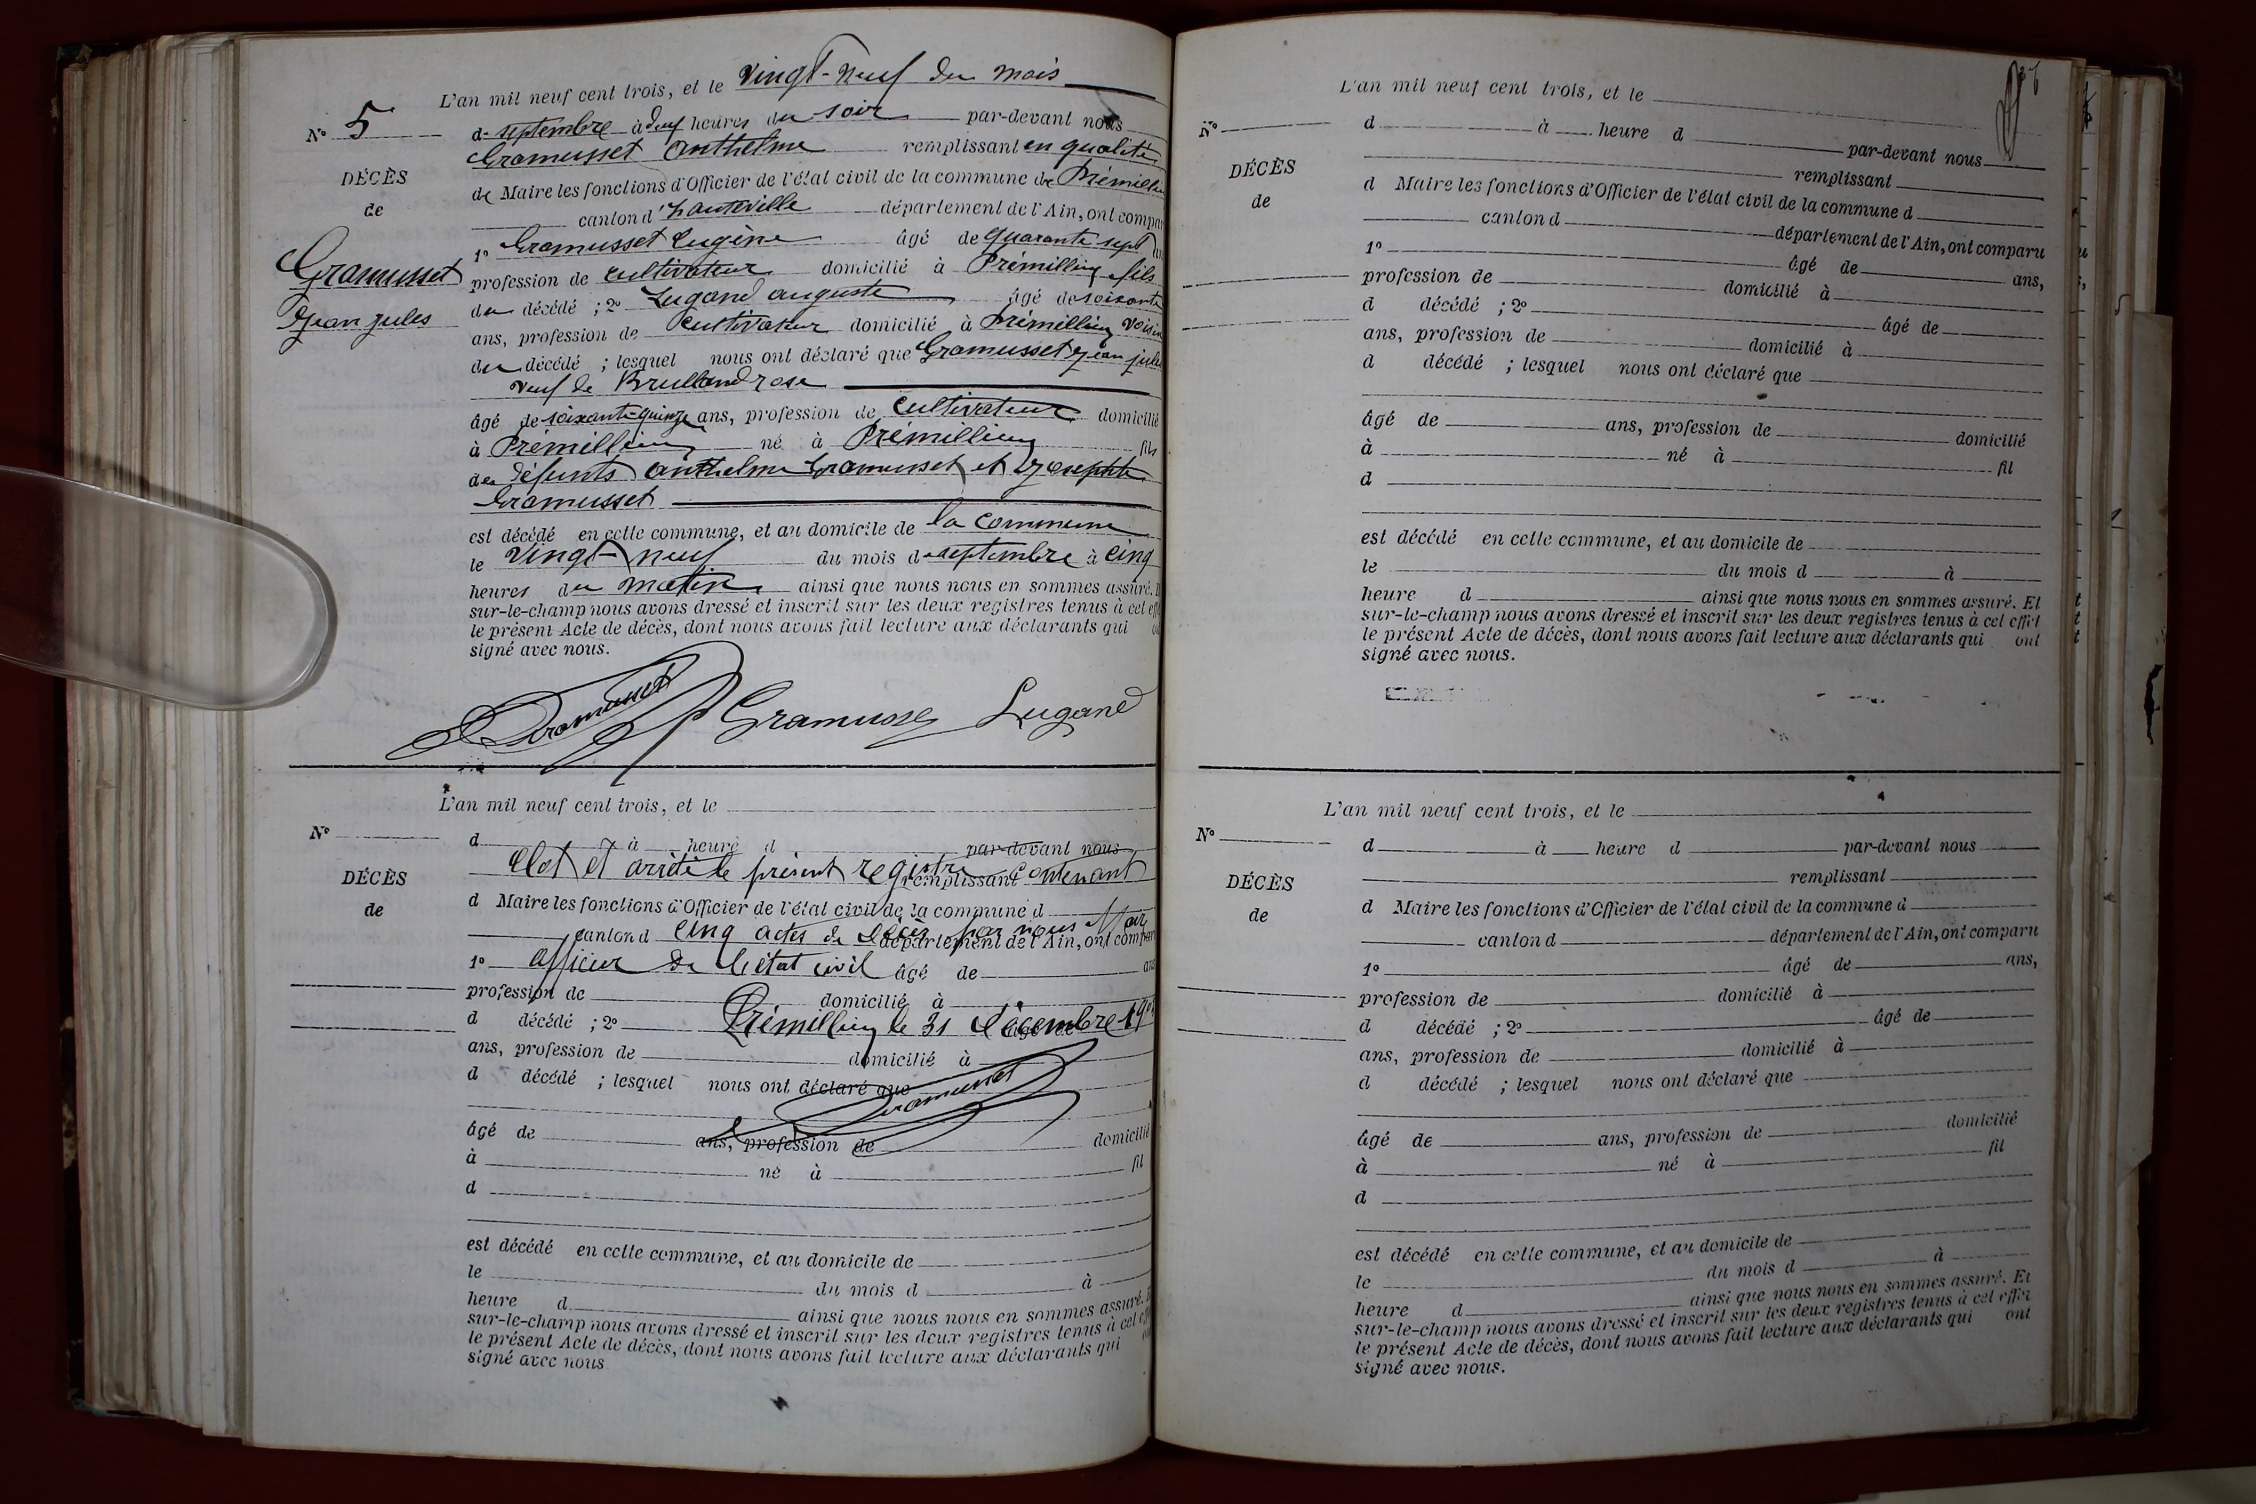 L'an mil neuf cent trois, et le vingt-neuf du mois
N° 5
de septembre à deux heures du soir par-devant nous
Gramusset Anthelme remplissant en qualité
DÉCÈS
de Maire les fonctions d'Officier de l'état civil de la commune de Prémillieu
de
canton d'hauteville département de l'Ain, ont compar
1° Gramusset Eugène âgé de quarante sept ans
Gramusset
profession de cultivateur domicilié à Prémillieu fils
Jean Jules
du décédé ; 2° Lugand auguste âgé de soixante
ans, profession de cultivateur domicilié à Prémillieu voisin
du décédé ; lesquel nous ont déclaré que Gramusset Jean jules
veuf de Brulland rose
âgé de soixante-quinze ans, profession de cultivateur domicilié
à Prémillieu né à Prémillieu fils
des défunts anthelme Gramusset et Josephte
Gramusset
est décédé en cette commune, et au domicile de la commune
le vingt-neuf du mois de septembre à cinq
heures du matin ainsi que nous nous en sommes assuré.
sur-le-champ nous avons dressé et inscrit sur les deux registres tenus à cet eff
le présent Acte de décès, dont nous avons fait lecture aux déclarants qui
signé avec nous.
Gramusset Gramusset Lugand
L'an mil neuf cent trois, et le
N°
d à heure d par-devant nous
Clot et arrêté le présent registre contenant
remplissant
DÉCÈS
d Maire les fonctions d'Officier de l'état civil de la commune d
de
cinq actes de décès par nous Maire
canton d département de l'Ain, ont compar
officier de l'état civil
1° âgé de ans
profession de domicilié à
Prémillieu le 31 décembre 190
d décédé ; 2° âgé de
ans, profession de domicilié à
d décédé ; lesquel nous ont déclaré que
Gramusset
âgé de ans, profession de domicilié
à né à fil
d
est décédé en cette commune, et au domicile de
le du mois d à
heure d ainsi que nous nous en sommes assuré.
sur-le-champ nous avons dressé et inscrit sur les deux registres tenus à cet eff
le présent Acte de décès, dont nous avons fait lecture aux déclarants qui
signé avec nous
L'an mil neuf cent trois, et le
N°
d à heure d par-devant nous
remplissant
DÉCÈS
d Maire les fonctions d'Officier de l'état civil de la commune d
de
canton d département de l'Ain, ont comparu
1° âgé de ans,
profession de domicilié à
d décédé ; 2° âgé de
ans, profession de domicilié à
d décédé ; lesquel nous ont déclaré que
âgé de ans, profession de domicilié
à né à fil
d
est décédé en cette commune, et au domicile de
le du mois d à
heure d ainsi que nous nous en sommes assuré. Et
sur-le-champ nous avons dressé et inscrit sur les deux registres tenus à cet effet
le présent Acte de décès, dont nous avons fait lecture aux déclarants qui ont
signé avec nous.
L'an mil neuf cent trois, et le
N°
d à heure d par-devant nous
remplissant
DÉCÈS
d Maire les fonctions d'Officier de l'état civil de la commune d
de
canton d département de l'Ain, ont comparu
1° âgé de ans,
profession de domicilié à
d décédé ; 2° âgé de
ans, profession de domicilié à
d décédé ; lesquel nous ont déclaré que
âgé de ans, profession de domicilié
à né à fil
d
est décédé en cette commune, et au domicile de
le du mois d à
heure d ainsi que nous nous en sommes assuré. Et
sur-le-champ nous avons dressé et inscrit sur les deux registres tenus à cet effet
le présent Acte de décès, dont nous avons fait lecture aux déclarants qui ont
signé avec nous.